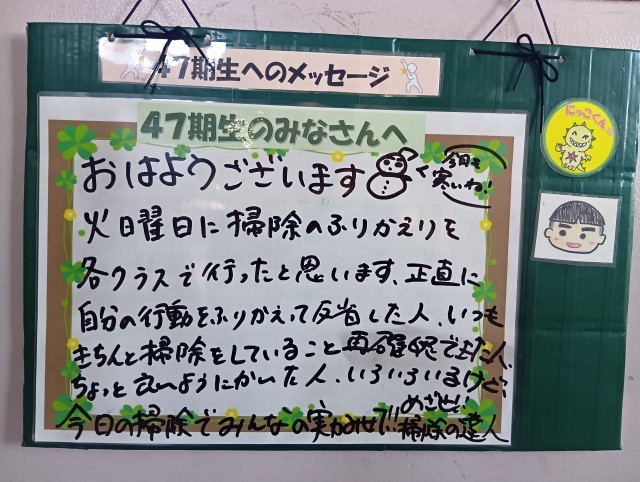 47期生へのメッセージ
47期生のみなさんへ
にっこくん
おはようございます
今日も
寒いわ!
火曜日に掃除のふりかえりを
各クラスで行ったと思います、正直に
自分の行動をふりかえって反省した人、いつも
きちんと掃除をしていること再確認できた人、
ちょっと良いようにかいた人、いろいろいるけど、
今日の掃除でみんなの実力みせて!!
めざせい
掃除の達人